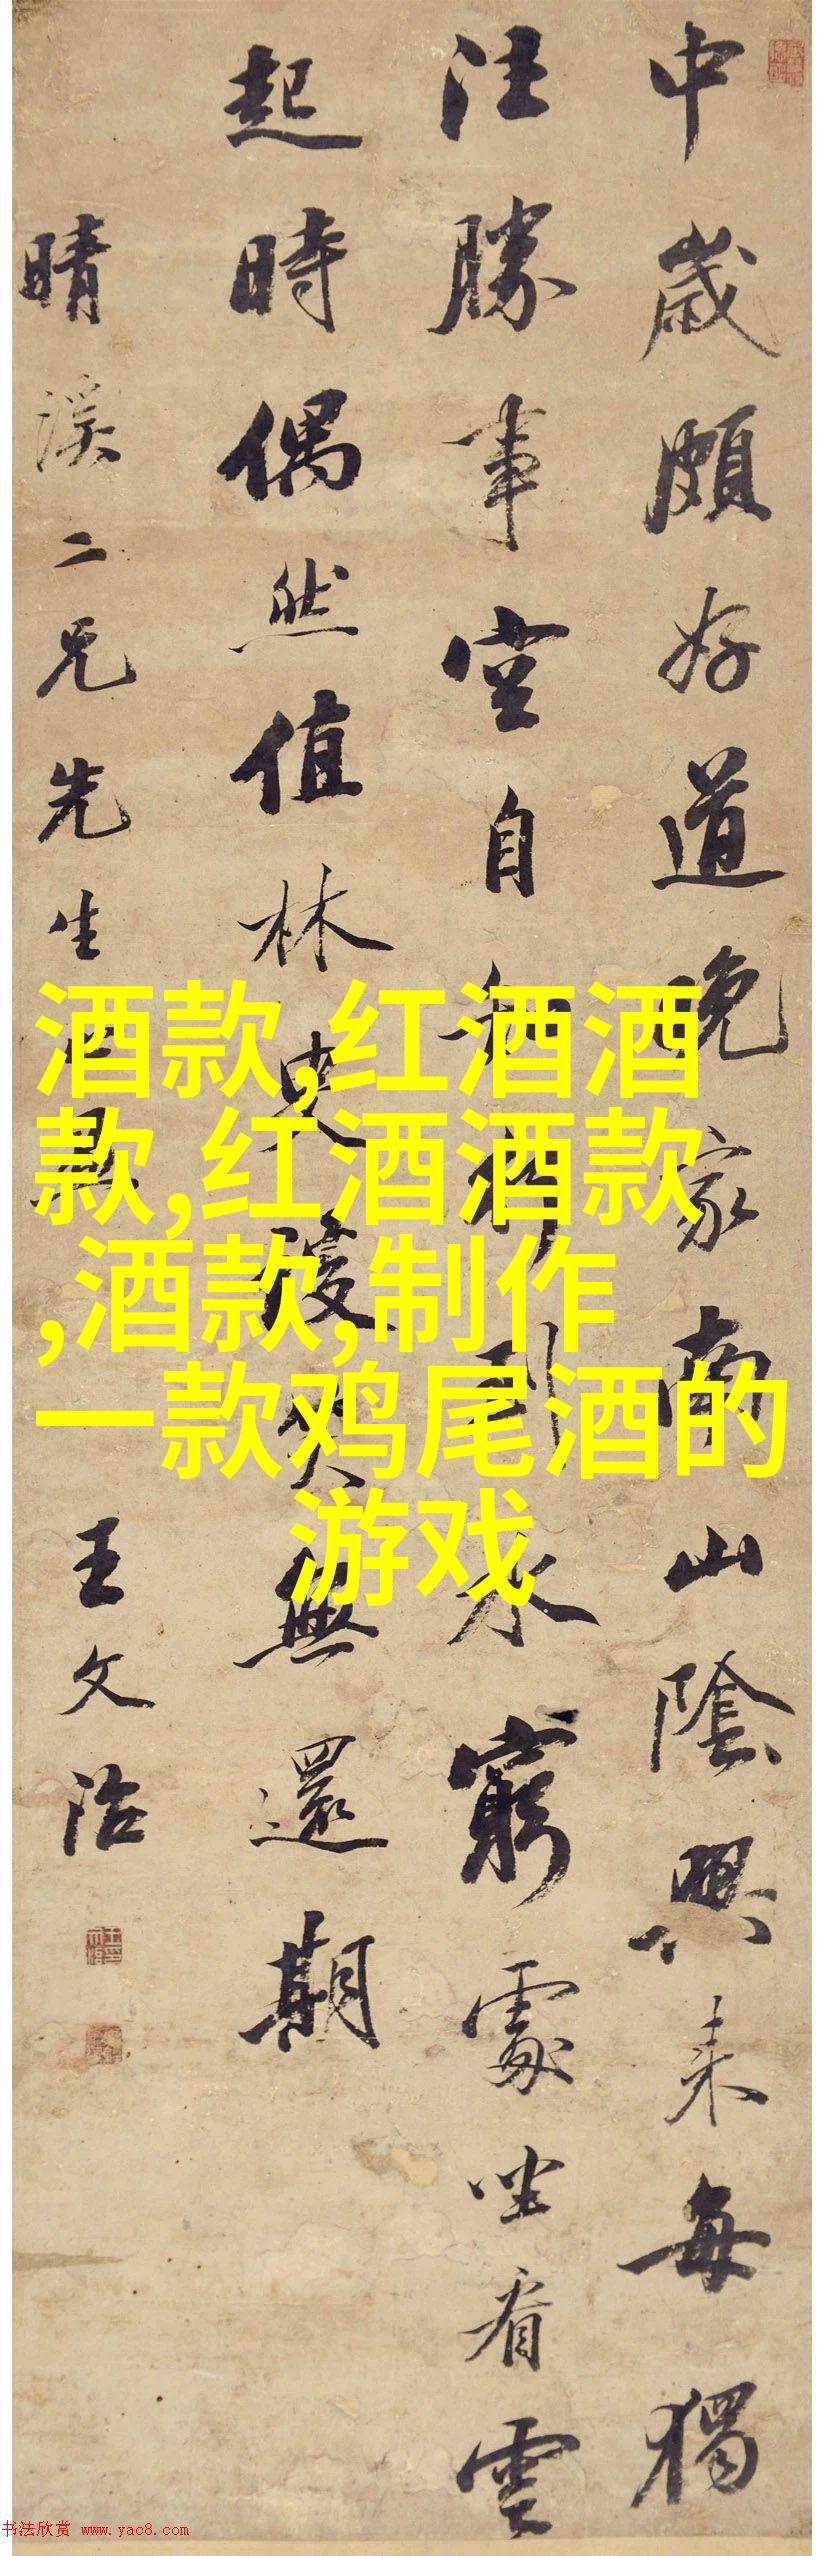 中歲頗好道晚家南山陰興來每獨
往勝事空自知行到水窮處坐看雲
起時偶然值林叟談笑無還期
晴溪二兄先生
王文治
酒款,红酒酒
款,红酒酒款
,酒款,制作
一款鸡尾酒的
游戏
书法欣赏 www.yac8.com